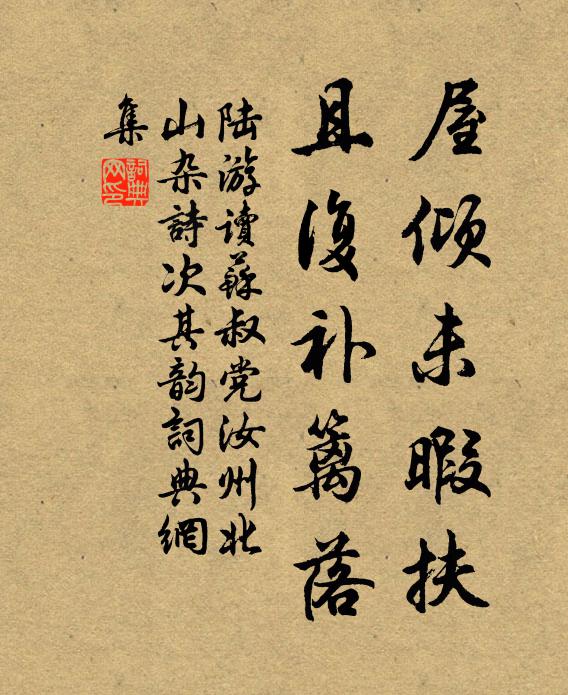 屋倾未暇扶
且復补篱落
陆游读蘇叔党汝州北
山杂詩次其韵詞典網
集
詞典
网印